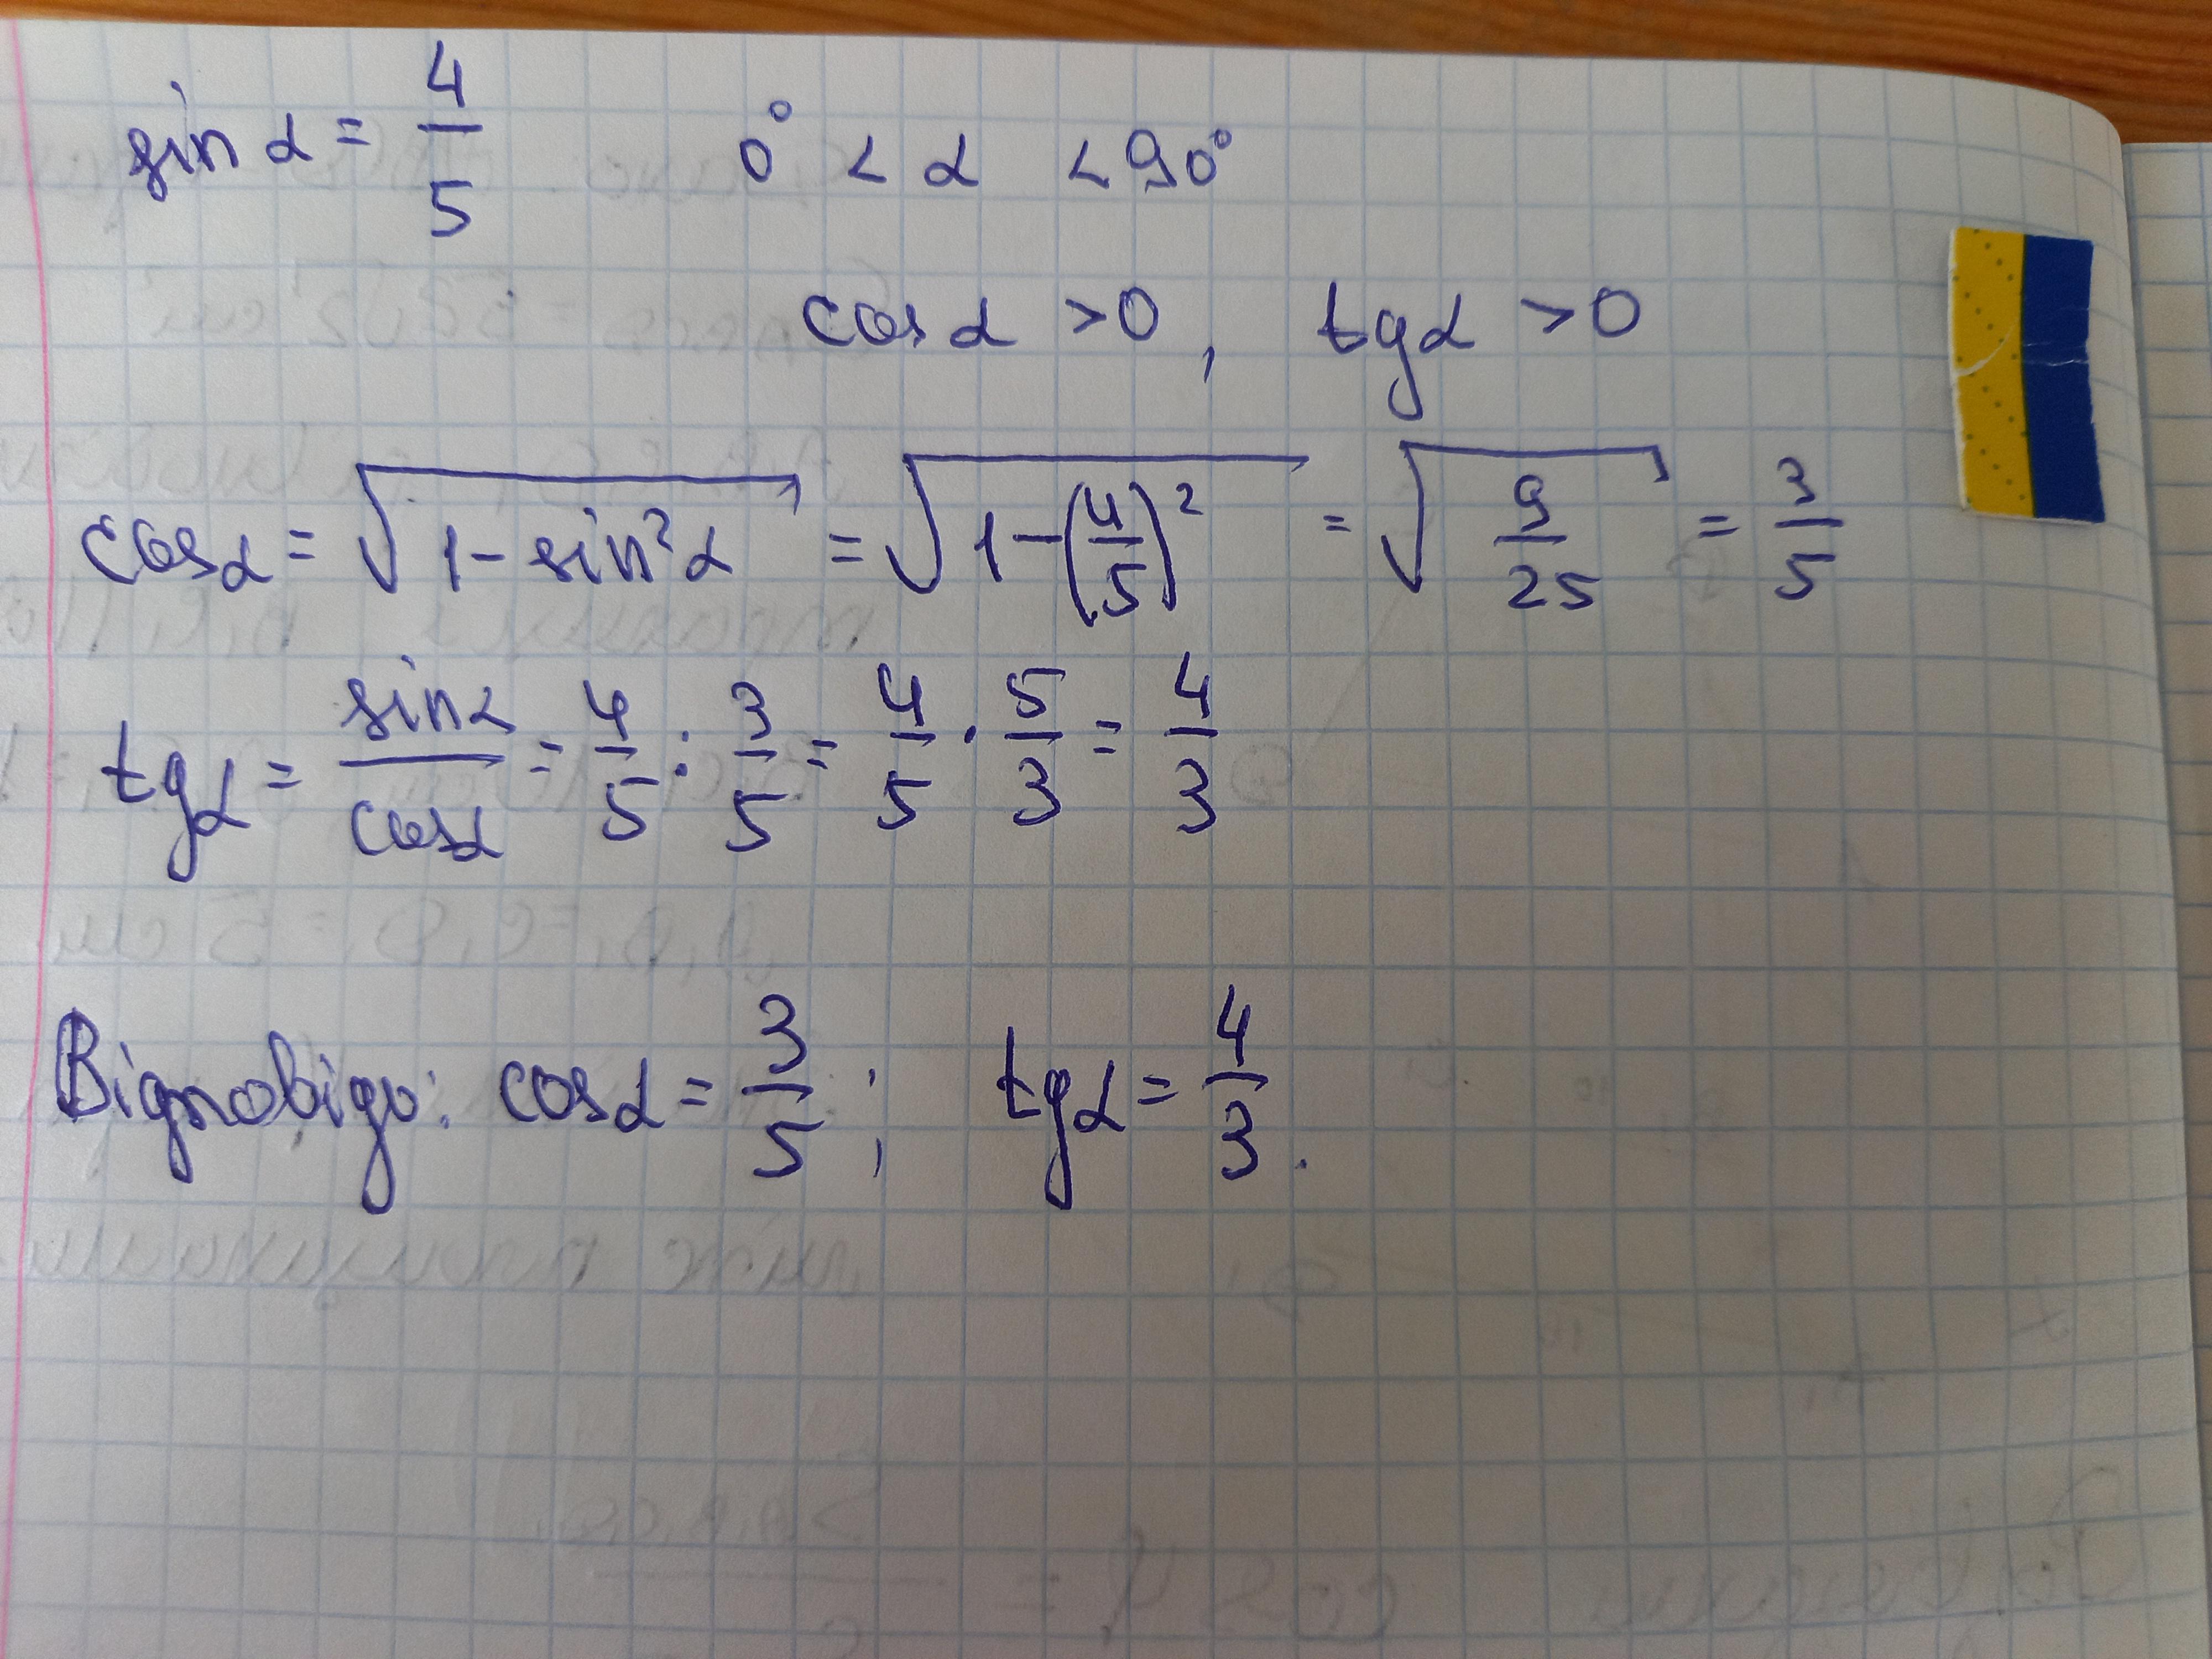 sin α = 4/5 0° < α < 90°
cos α > 0, tg α > 0
cos α = √(1 - sin² α) = √(1 - (4/5)²) = √(9/25) = 3/5
tg α = sin α / cos α = 4/5 : 3/5 = 4/5 · 5/3 = 4/3
Відповідь: cos α = 3/5; tg α = 4/3.